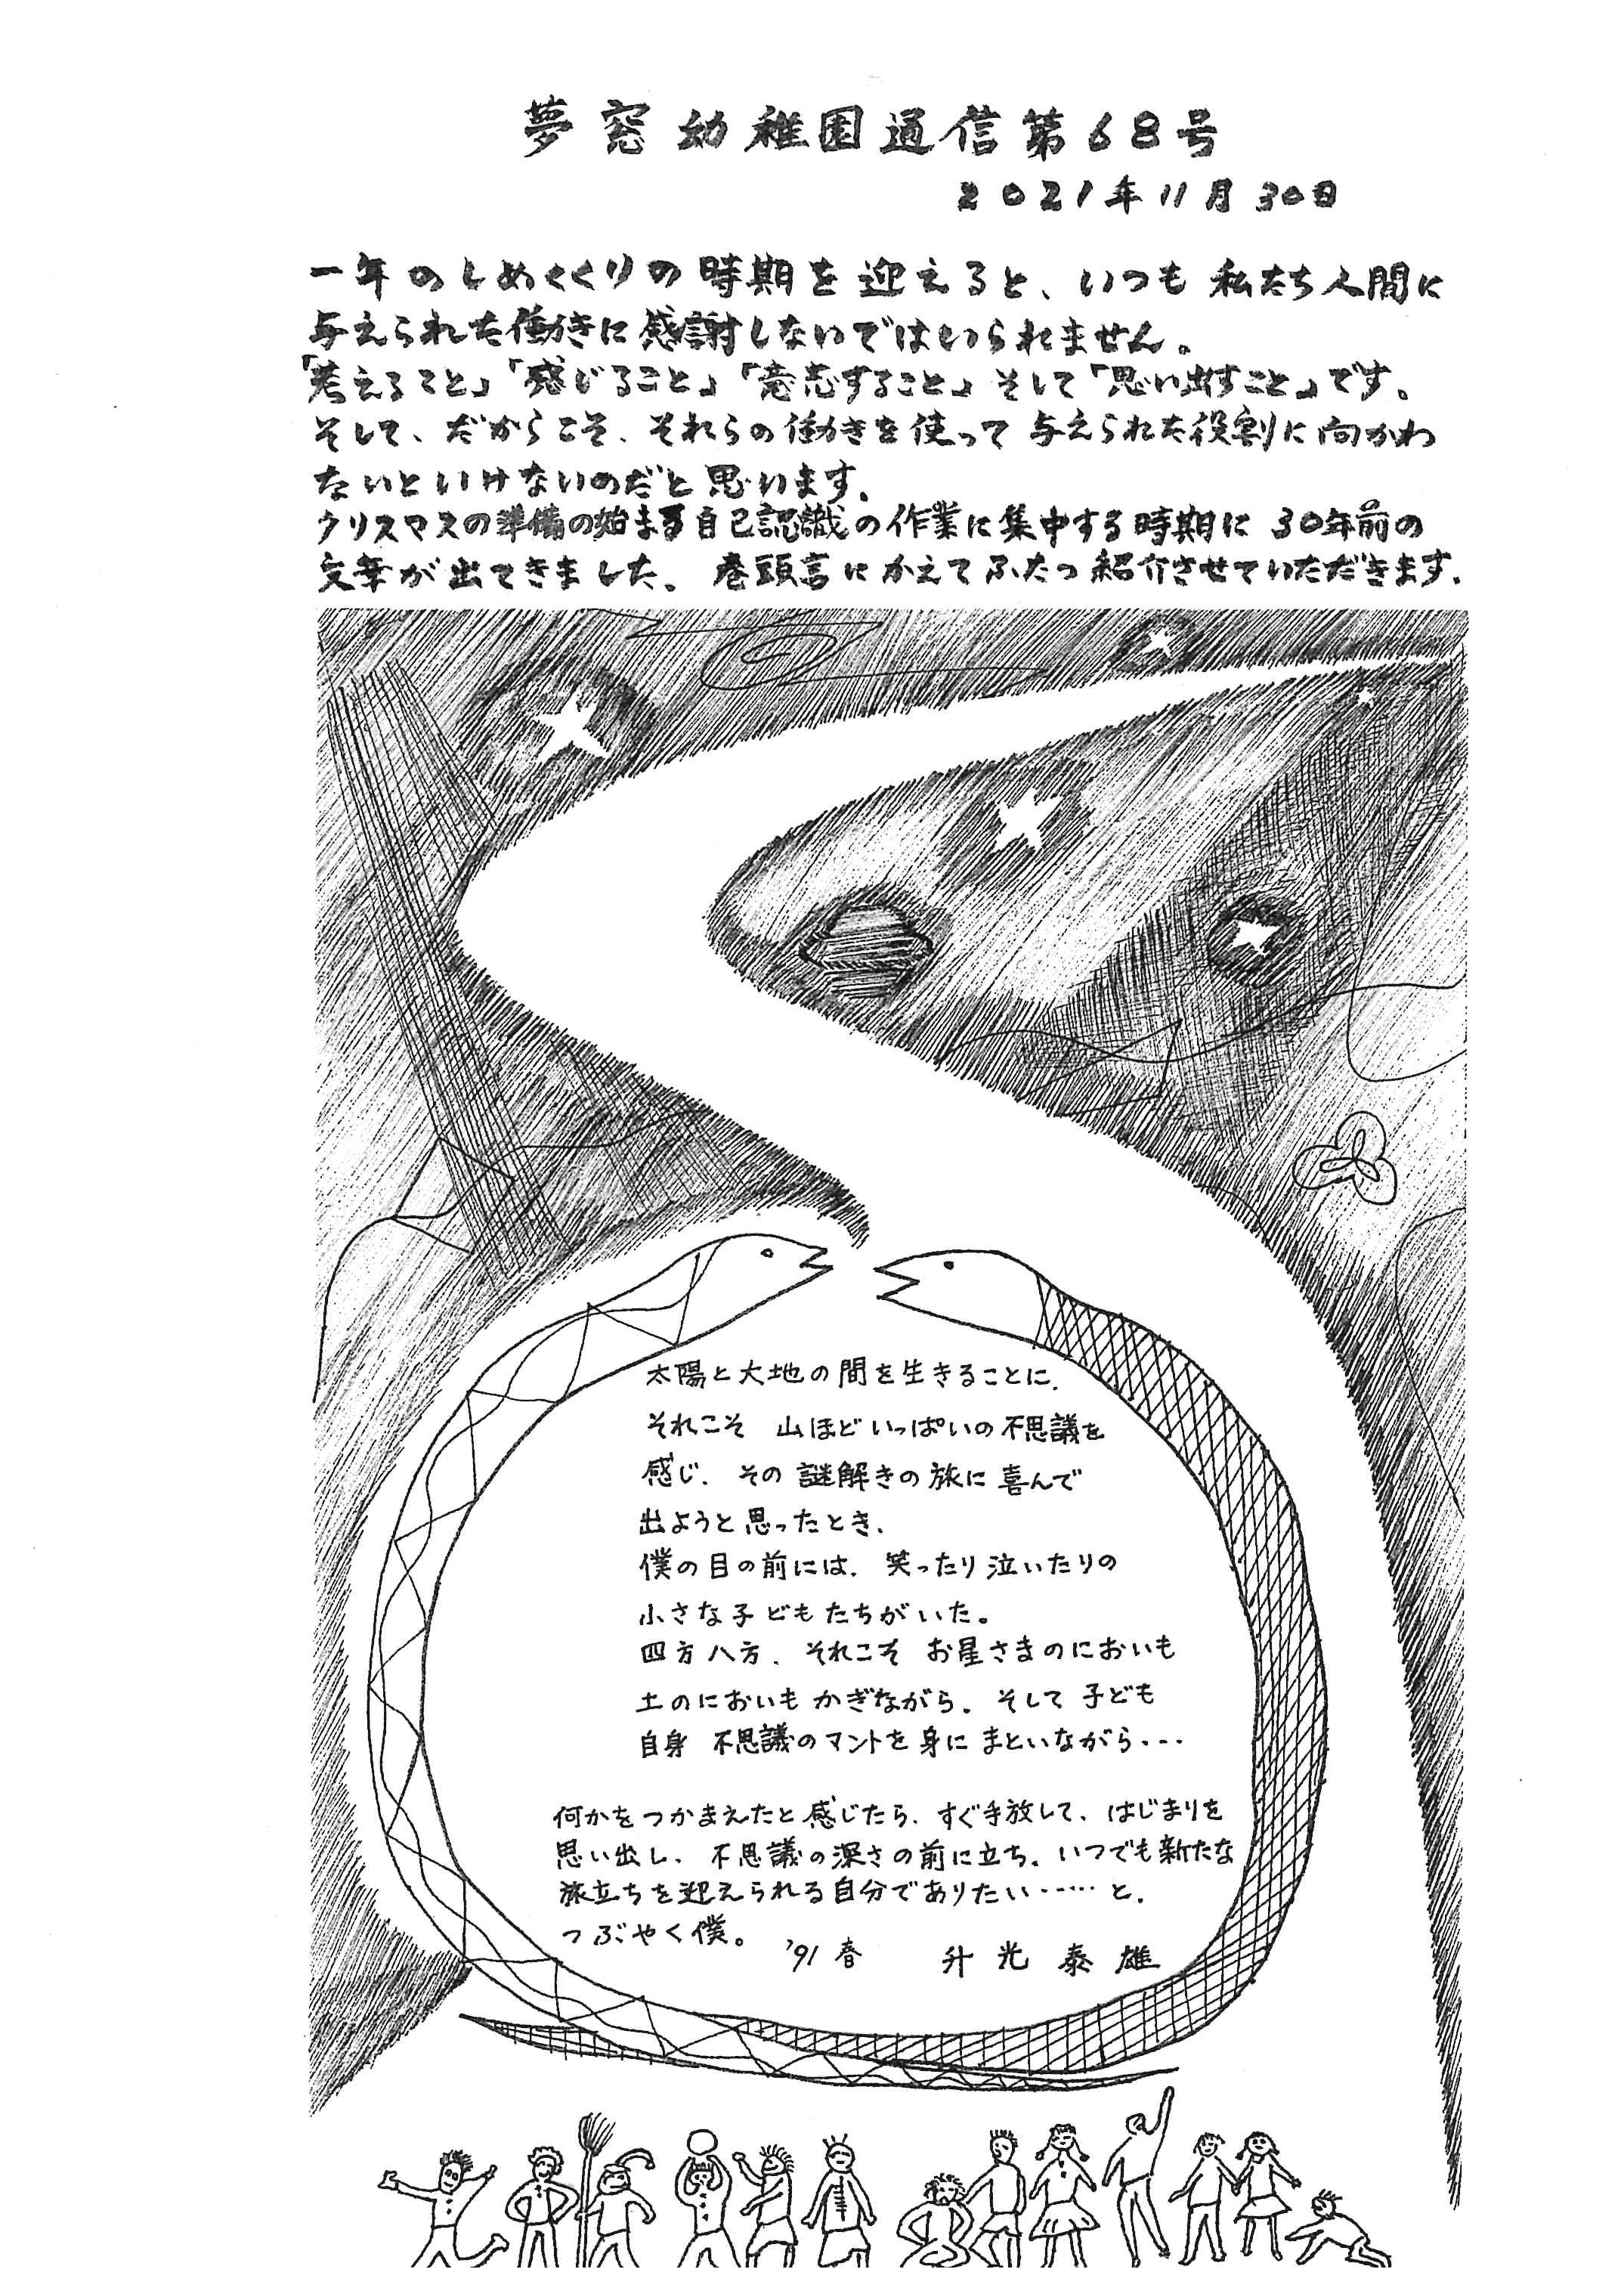 夢窓幼稚園通信第68号
2021年11月30日
一年のしめくくりの時期を迎えると、いつも私たち人間に
与えられた働きに感謝しないではいられません。
「考えること」「感じること」「意志すること」そして「思い出すこと」です。
そして、だからこそ、それらの働きを使って与えられた役割に向かわ
ないといけないのだと思います。
クリスマスの準備の始まる自己認識の作業に集中する時期に30年前の
文章が出てきました。巻頭言にかえてふたつ紹介させていただきます。
太陽と大地の間を生きることに、
それこそ 山ほどいっぱいの不思議を
感じ、その謎解きの旅に喜んで
出ようと思ったとき、
僕の目の前には、笑ったり泣いたりの
小さな子どもたちがいた。
四方八方、それこそ お星さまのにおいも
土のにおいもかぎながら、そして子ども
自身 不思議のマントを身にまといながら・・・
何かをつかまえたと感じたら、すぐ手放して、はじまりを
思い出し、不思議の深さの前に立ち、いつでも新たな
旅立ちを迎えられる自分でありたい・・・・・と、
つぶやく僕。
'91春 升光泰雄